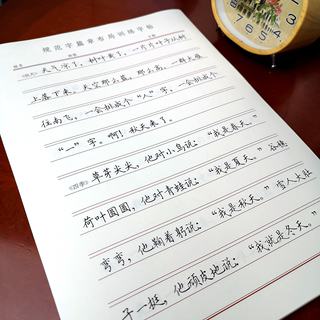 规范字篇章布局训练字帖
《秋天》天气凉了，树叶黄了，一片片叶子从树
上落下来。天空那么蓝，那么高。一群大雁
往南飞，一会排成个“人”字，一会排成个
“一”字。啊！秋天来了。
《四季》草芽尖尖，他对小鸟说：“我是春天。”
荷叶圆圆，他对青蛙说：“我是夏天。”谷穗
弯弯，他鞠着躬说：“我是秋天。”雪人大肚
子一挺，他顽皮地说：“我就是冬天。”